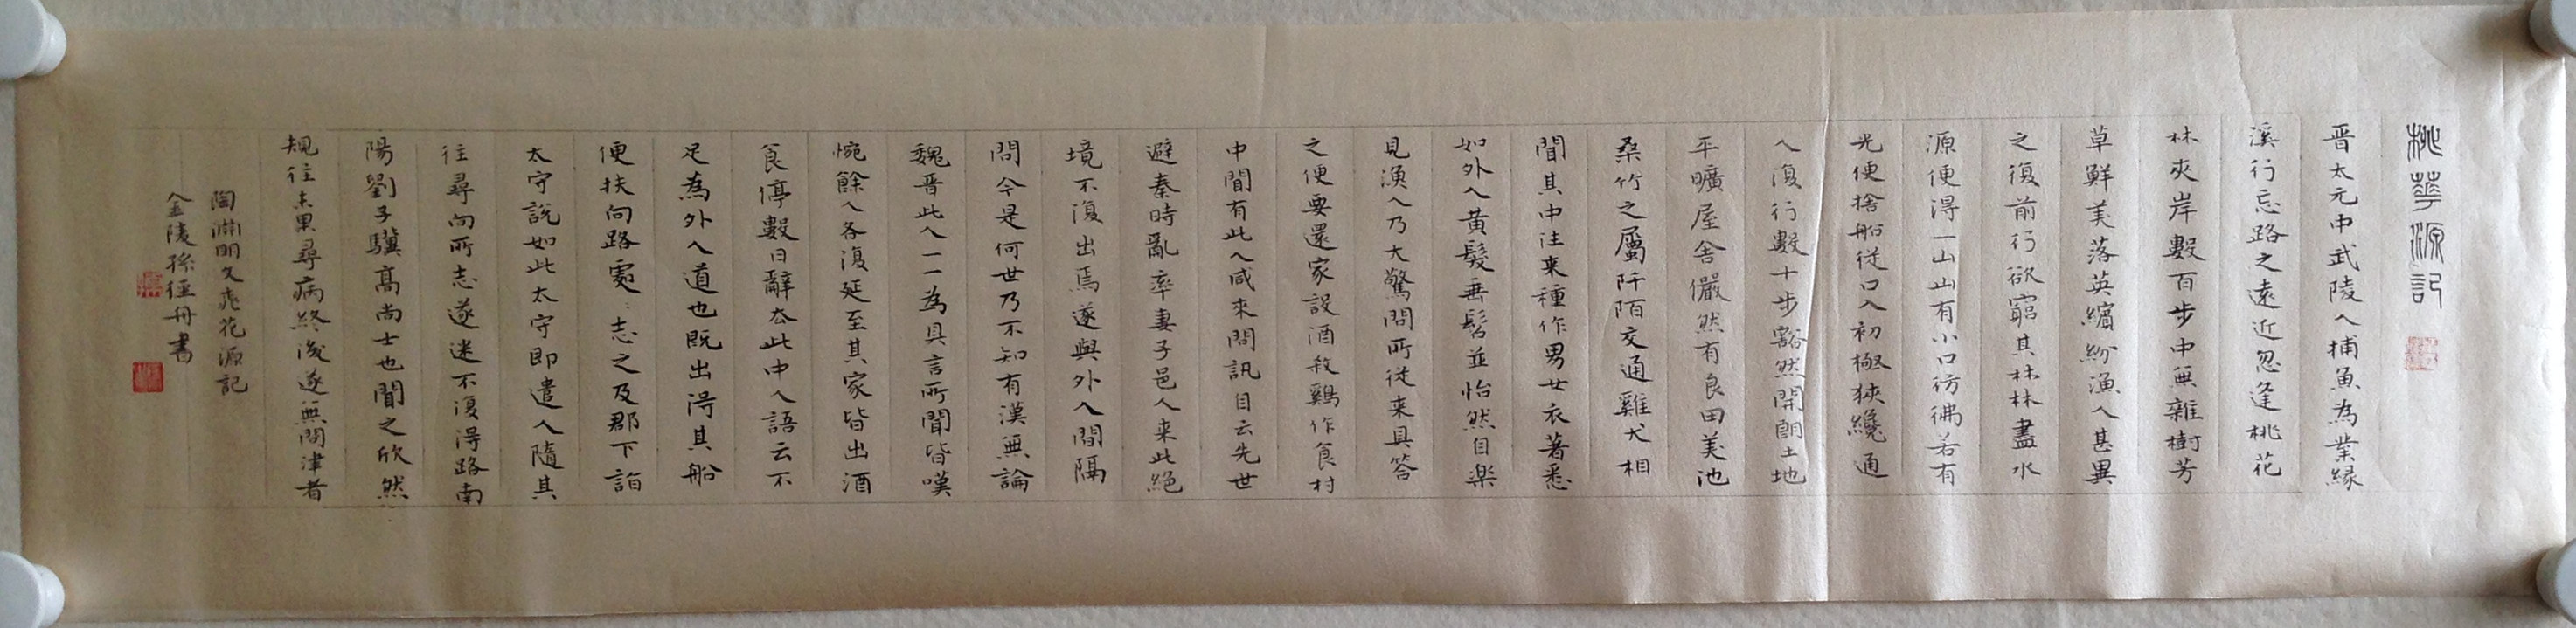 桃華源記
晉太元中武陵人捕魚為業緣
溪行忘路之遠近忽逢桃花
林夾岸數百步中無雜樹芳
草鮮美落英繽紛漁人甚異
之復前行欲窮其林林盡水
源便得一山山有小口彷彿若有
光便捨船従口入初極狹纔通
人復行數十步豁然開朗土地
平曠屋舍儼然有良田美池
桑竹之屬阡陌交通雞犬相
聞其中往来種作男女衣著悉
如外人黃髮垂髫並怡然自楽
見漁人乃大驚問所従来具答
之便要還家設酒殺鷄作食村
中聞有此人咸來問訊自云先世
避秦時亂率妻子邑人来此絕
境不復出焉遂與外人間隔
問今是何世乃不知有漢無論
魏晋此人一一為具言所聞皆嘆
惋餘人各復延至其家皆出酒
食停數日辭去此中人語云不
足為外人道也既出得其船
便扶向路處〻志之及郡下詣
太守說如此太守即遣人隨其
往尋向所志遂迷不復得路南
陽劉子驥高尚士也聞之欣然
規往未果尋病終後遂無問津者
陶淵明文桃花源記
金陵孫徑舟書